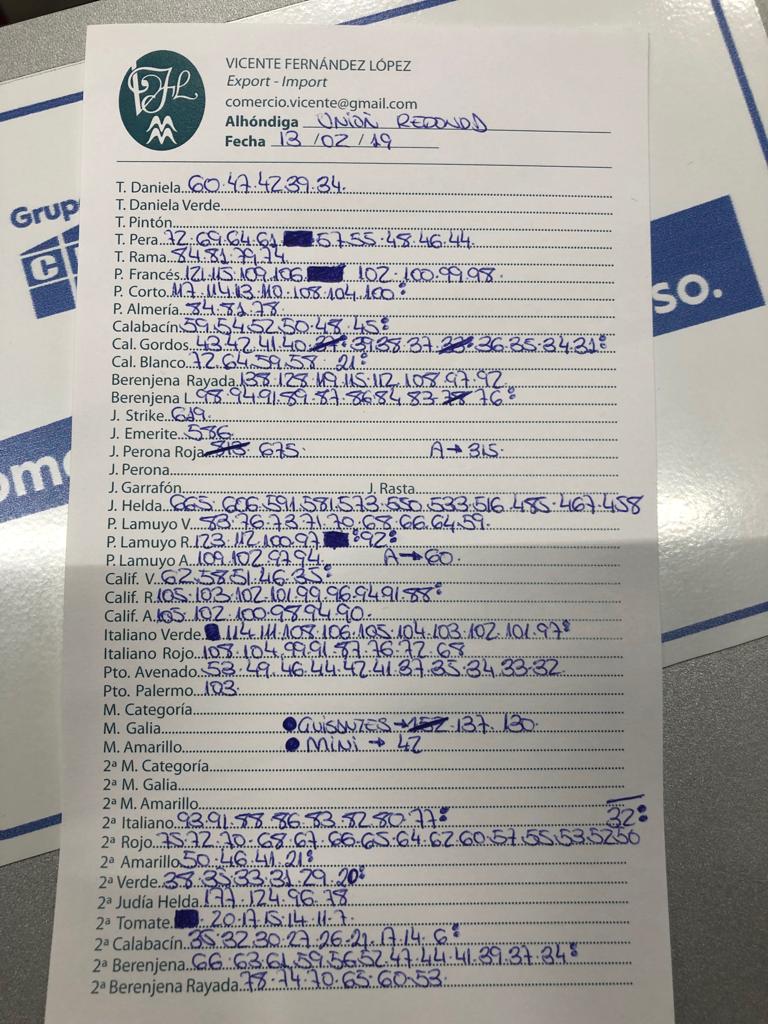 VICENTE FERNÁNDEZ LÓPEZ
Export - Import
comercio.vicente@gmail.com
Alhóndiga UNIÓN REDONDO
Fecha 13/02/19
T. Daniela 60.47.42.39.34.
T. Daniela Verde
T. Pintón
T. Pera 72.69.64.61 57.55.48.46.44.
T. Rama 84.81.79.74
P. Francés 121.115.109.106 102.100.99.98.
P. Corto 117.114.113.110.108.104.100:
P. Almería 84.81.78
Calabacín 59.54.52.50.48.45:
Cal. Gordos 43.42.41.40 39.38.37 36.35.34.31:
Cal. Blanco 72.64.59.58.21:
Berenjena Rayada 138.128.119.115.112.108.97.92.
Berenjena L. 98.94.91.89.87.86.84.83 76:
J. Strike 619.
J. Emerite 586.
J. Perona Roja 675. A→315.
J. Perona
J. Garrafón J. Rasta
J. Helda 665.606.591.581.573.550.533.516.485.467.458
P. Lamuyo V. 83.76.73.71.70.68.66.64.59.
P. Lamuyo R. 123.112.100.97 :92:
P. Lamuyo A. 109.102.97.94. A→60.
Calif. V. 62.58.51.46.35:
Calif. R. 105.103.102.101.99.96.94.91.88:
Calif. A. 105.102.100.98.94.90.
Italiano Verde 114.111.108.106.105.104.103.102.101.97:
Italiano Rojo 108.104.99.91.87.76.72.68
Pto. Avenado 53.49.46.44.42.41.37.35.34.33.32
Pto. Palermo 103.
M. Categoría
M. Galia ●GUISANTES→ 137.130.
M. Amarillo ●MINI→42
2ª M. Categoría
2ª M. Galia
2ª M. Amarillo
2ª Italiano 93.91.88.86.83.82.80.77: 32:
2ª Rojo 75.72.70.68.67.66.65.64.62.60.57.55.53.52.50
2ª Amarillo 50.46.41.21:
2ª Verde 38.35.33.31.29.20:
2ª Judía Helda 177.124.96.78
2ª Tomate 20.17.15.14.11.7.
2ª Calabacín 35.32.30.27.26.21.17.14.6:
2ª Berenjena 66.63.61.59.56.52.47.44.41.39.37.34:
2ª Berenjena Rayada 78.74.70.65.60.53.
Grup
so.